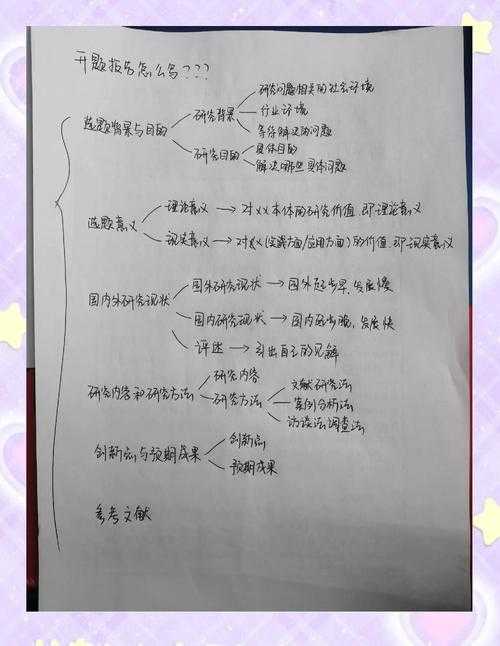 开题报告怎么写???
选题背景与目的
研究背景
研究问题相关的社会环境
行业环境
等待解决的问题
研究目的
具体目的
解决哪些具体问题
选题意义
理论意义 → 对XX本体的研究价值,即理论意义
现实意义 → 对XX(实践方面/应用方面)的价值,即现实意义
国内外研究现状
国外研究现状 → 国外起步早、发展慢
国内研究现状 → 国内起步晚,发展快
评述 → 引出自己的见解
研究内容和研究方法
研究内容
研究方法
文献研究法
案例分析法
访谈法调查法
创新点与预期成果
创新点
预期成果
参考文献